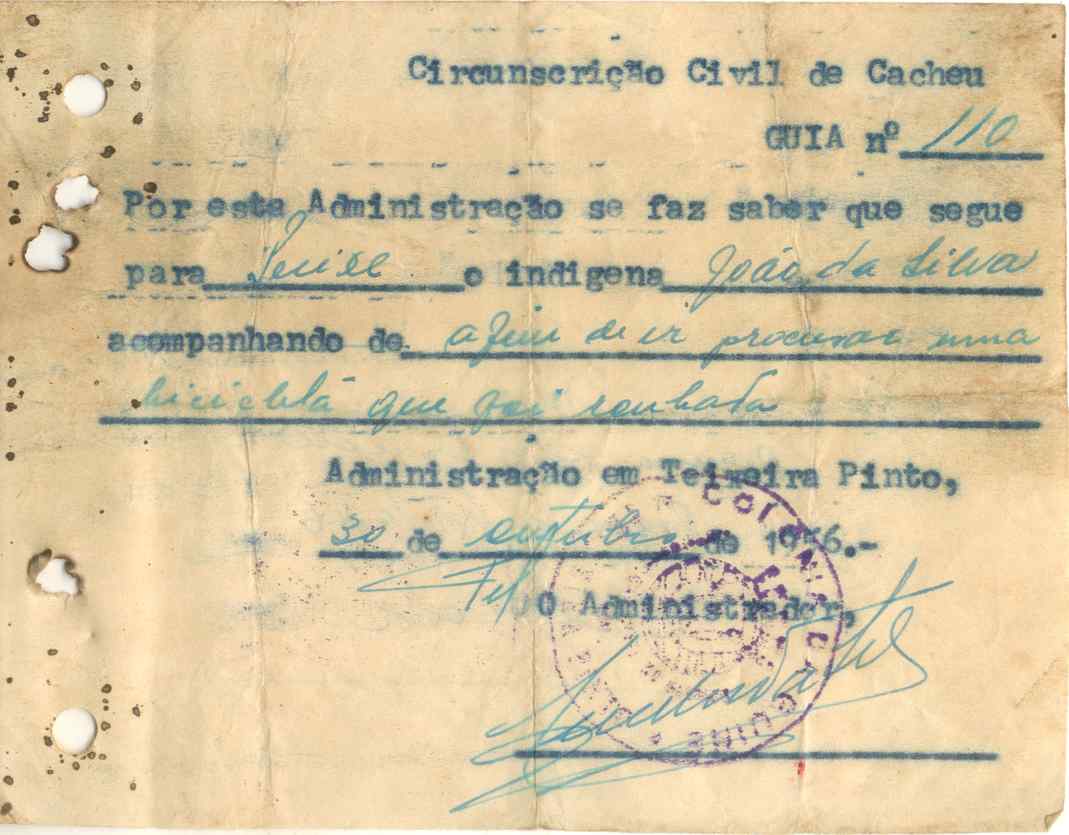 Circunscrição Civil de Cacheu
GUIA nº 110
Por esta Administração se faz saber que segue
para o indigena João da Silva
acompanhando de afim de ir procurar uma
bicicleta que foi roubada
Administração em Teixeira Pinto,
30 de outubro de 1946.-
O Administrador,
COLONIA DA GUINÉ